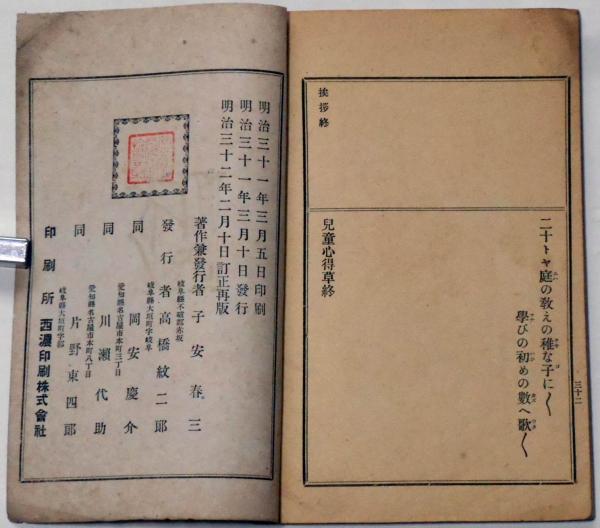 二十トヤ庭の敎えの稚な子に〱
學びの初めの數へ歌〱
三十二
兒童心得草終
挨拶終
明治三十一年三月五日印刷
明治三十一年三月十日發行
明治三十二年二月十日訂正再版
著作兼發行者 子安春三
岐阜縣不破郡赤坂
發行者 高橋紋二郎
岐阜縣大垣町字岐阜
同 岡安慶介
愛知縣名古屋市本町三丁目
同 川瀨代助
愛知縣名古屋市本町八丁目
同 片野東四郎
岐阜縣大垣町字郭
印刷所 西濃印刷株式會社